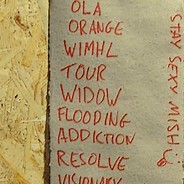 OLA
ORANGE
WIMHL
TOUR
WIDOW
FLOODING
ADDICTION
RESOLVE
VISIONARY
STAY SEXY MISH